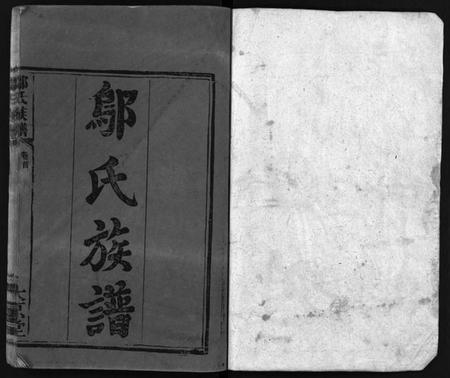 鄔氏族譜
鄔氏族譜
卷首